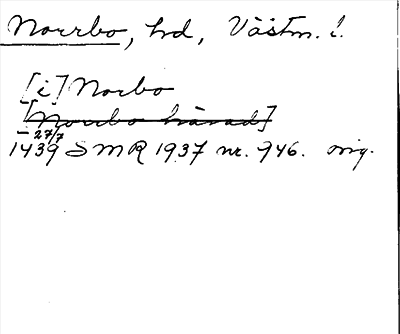 Norrbo, hd, Västm. l.
[i] Norbo
[Norrbo härad]
– 27/7
1439 SMR 1937 nr. 946. orig.